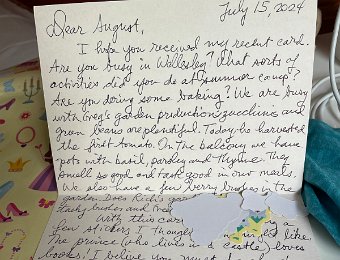 July 15, 2024
Dear August,
I hope you received my recent card.
Are you busy in Wellesley? What sorts of
activities did you do at summer camp?
Are you doing some baking? We are busy
with Greg's garden production: zucchinis and
green beans are plentiful. Today, he harvested
the first tomato. On the balcony we have
pots with basil, parsley and thyme. They
smell so good and taste good in our meals.
We also have a few berry bushes in the
garden. Does Rich's
bushes and
With this car
few stickers I thought like
The prince (who lives in a castle) loves
books! I believe you must